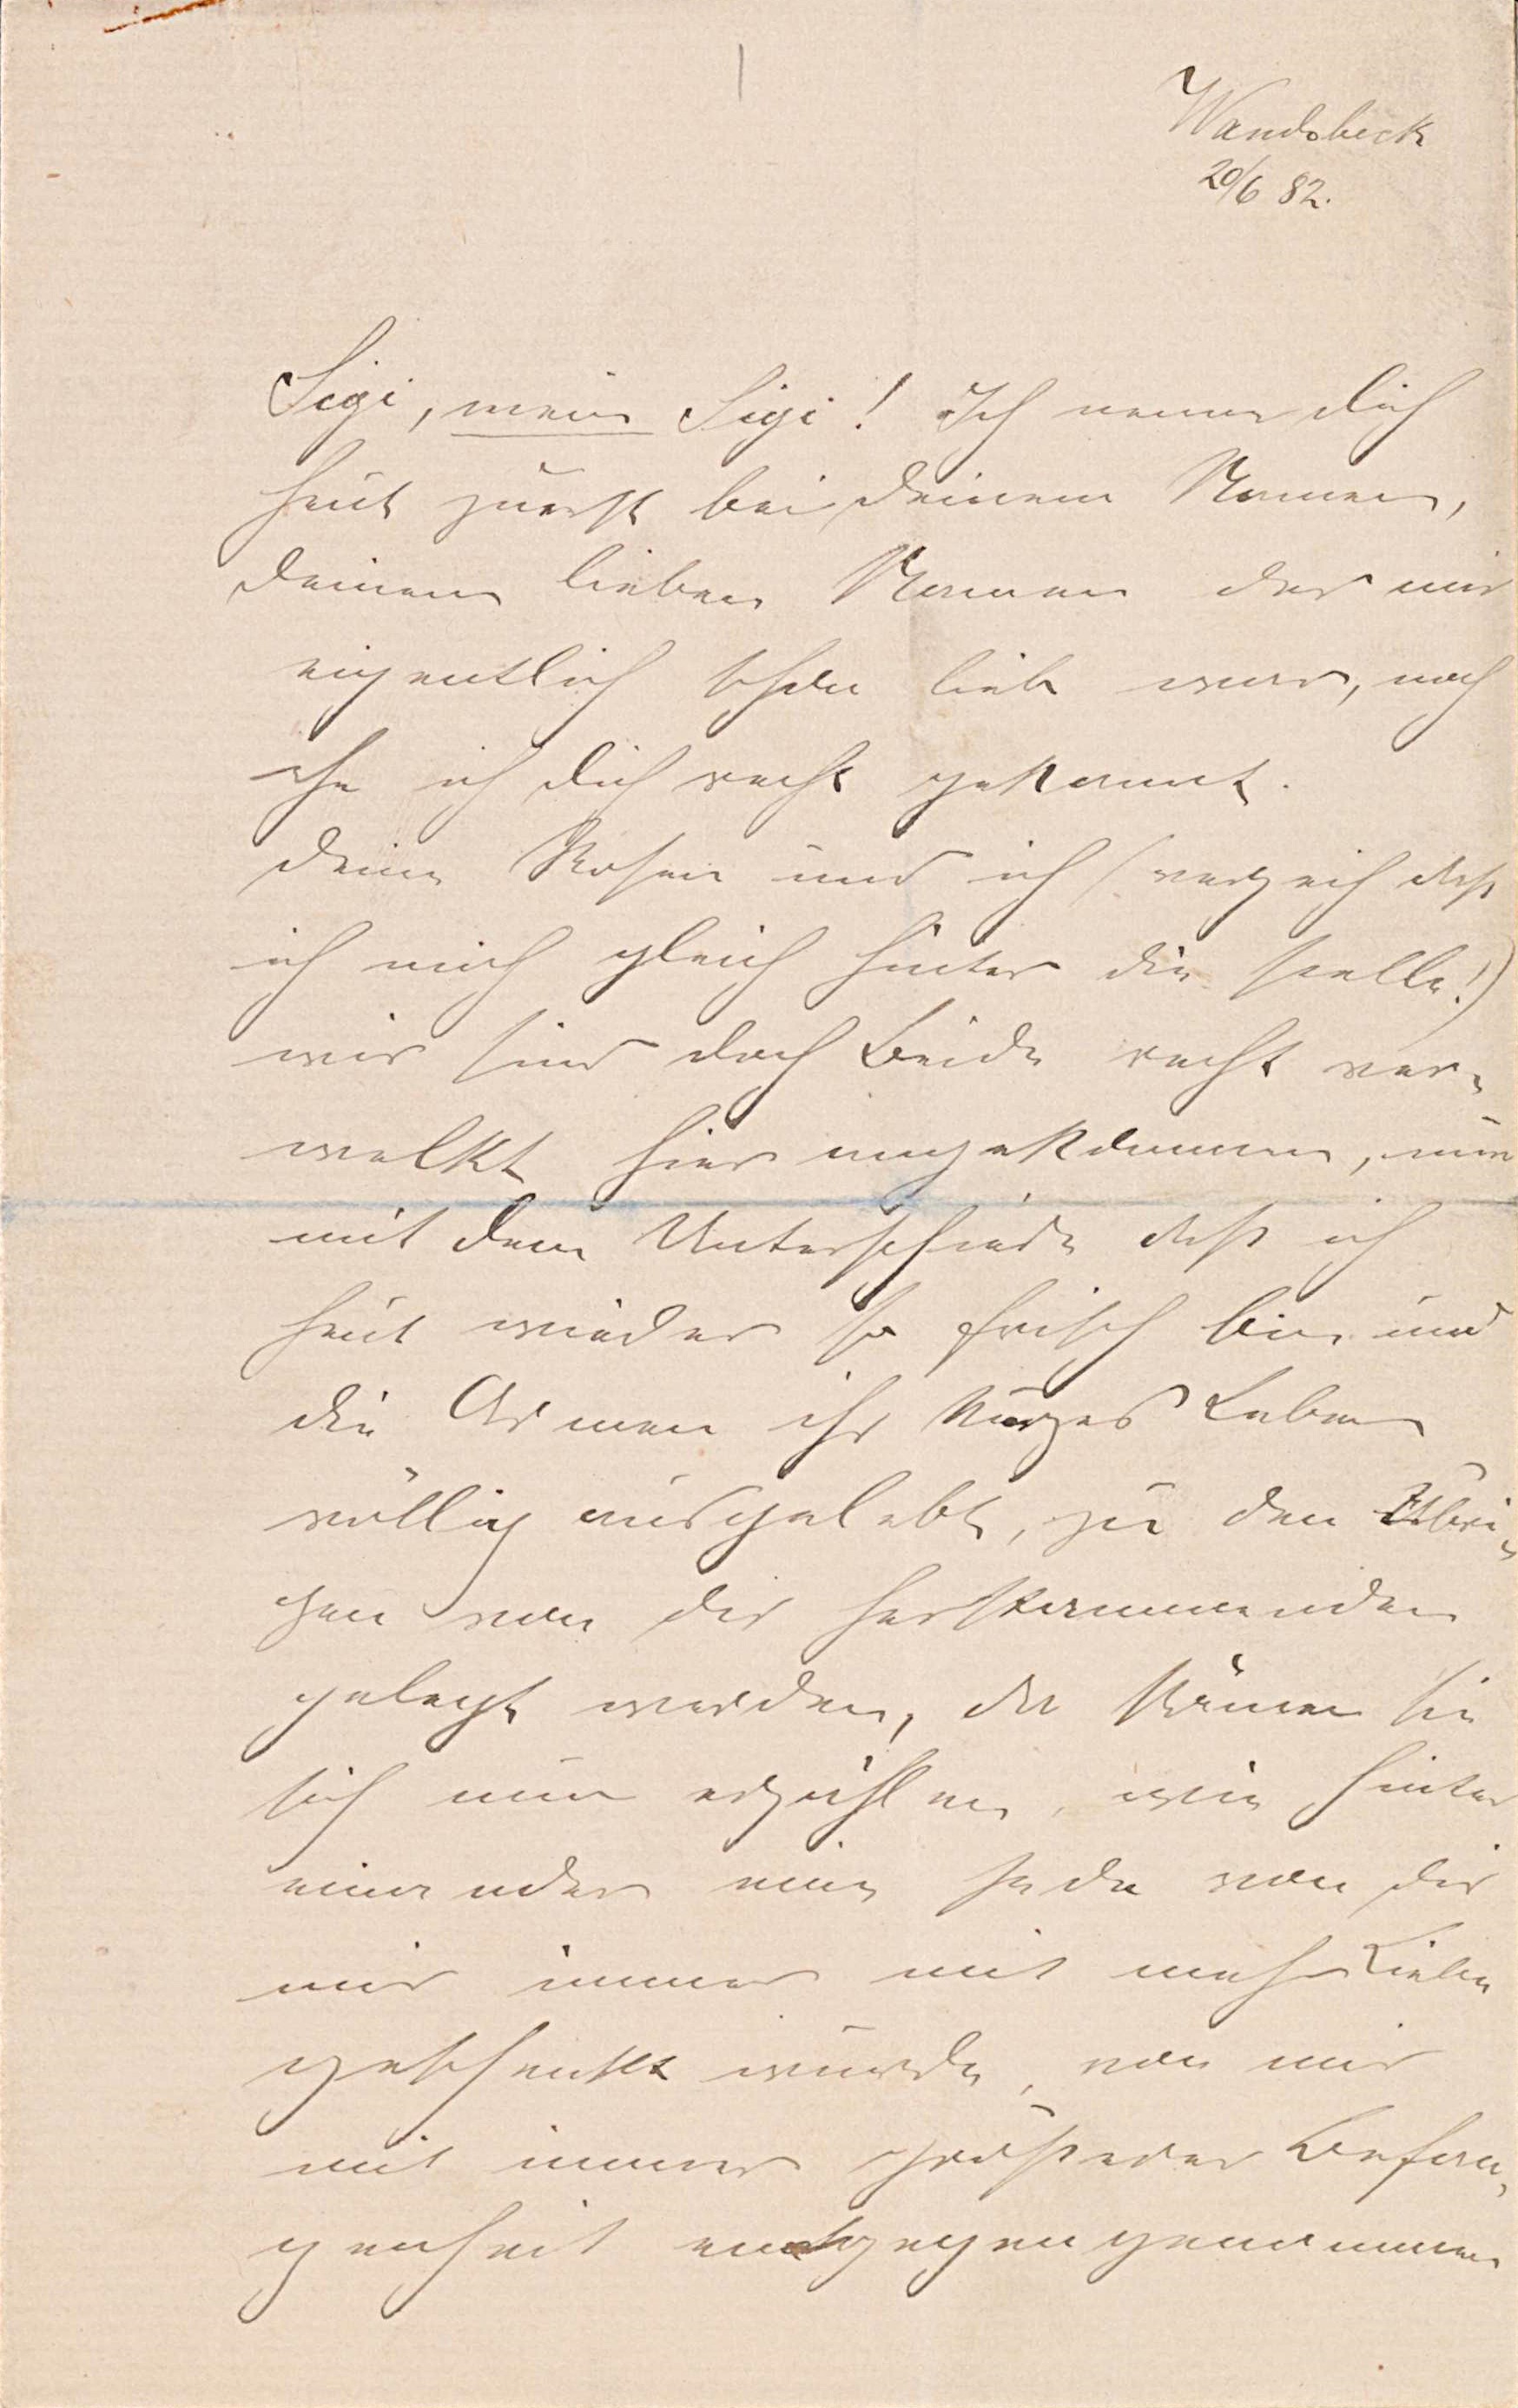 Wandsbeck
20/6 82.
Sigi, mein Sigi! Ich nenne Dich
heut zuerst bei Deinem Namen,
Deinem lieben Namen der mir
eigentlich schon lieb war, noch
ehe ich Dich recht gekannt.
Deine Rosen und ich (verzeih daß
ich mich gleich hinter die stelle!)
wir sind doch Beide recht ver-
welkt hier angekommen, nur
mit dem Unterschiede daß ich
heut wieder so frisch bin und
die Armen ihr kurzes Leben
völlig ausgelebt, zu den Übri-
gen von Dir herstammenden
gelegt werden, da können sie
sich nun erzählen, wie hinter
einander eine jede von Dir
mir immer mit mehr Liebe
geschenkt wurde, von mir
mit immer größerer Befan-
genheit entgegengenommen